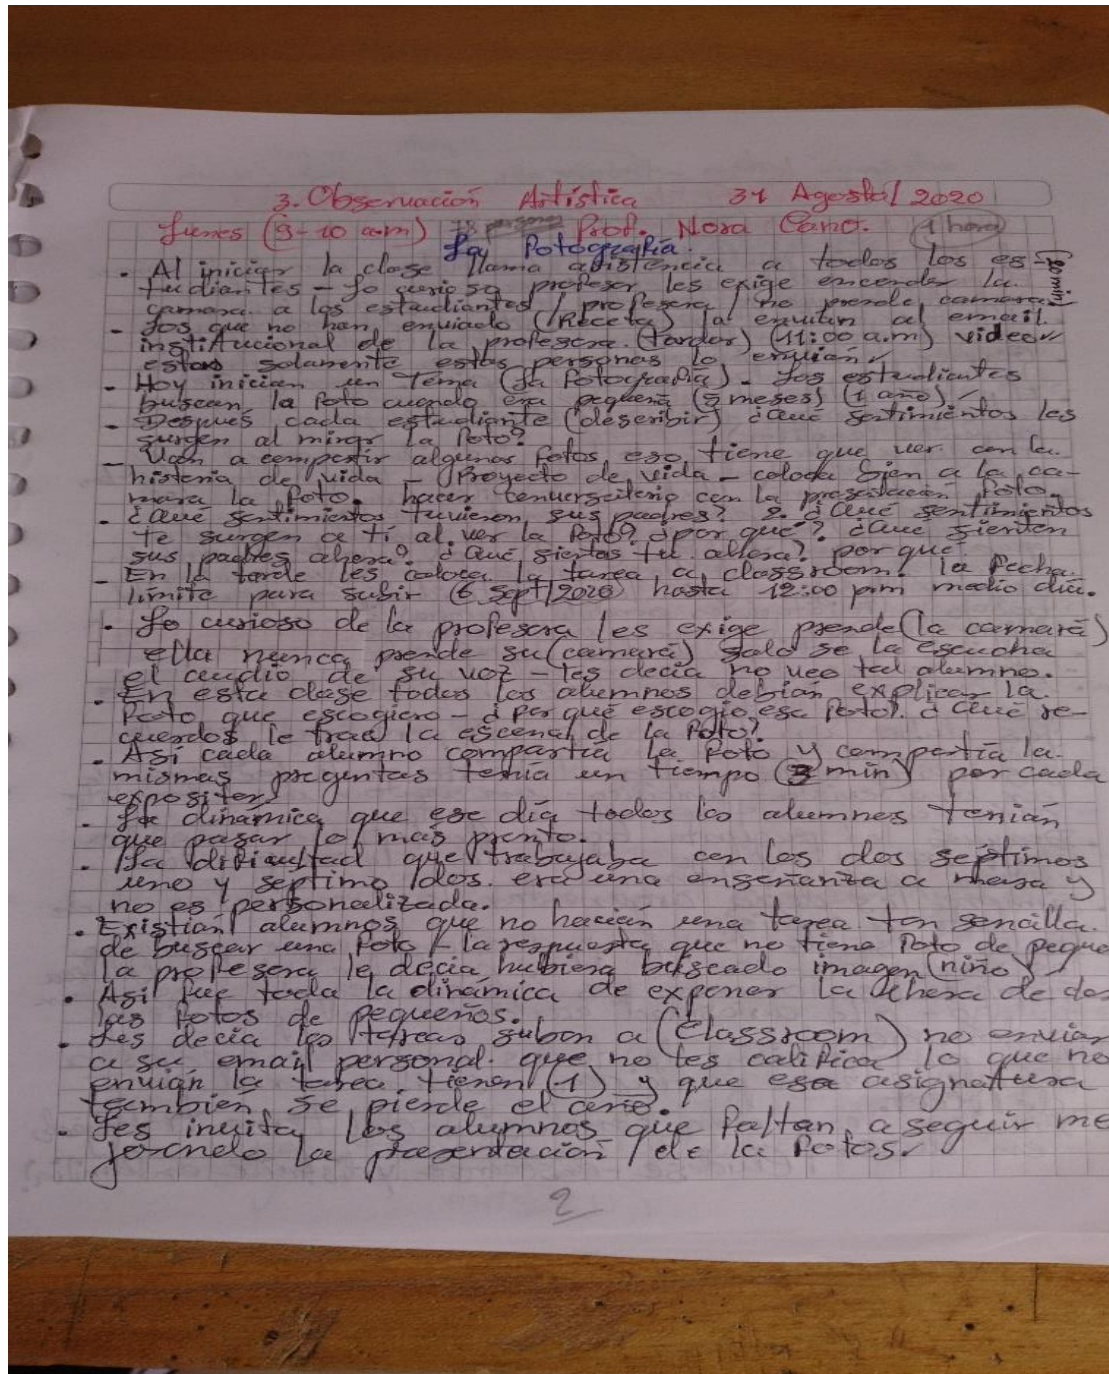 3. Observación Artística 31 Agosto / 2020
Lunes (9-10 a.m) 78 personas Prof. Nora Cano. (1 hora)
La Fotografía.
• Al iniciar la clase llama asistencia a todos los es- (60 min)
tudiantes - Lo curioso profesor les exige encender la
camara a los estudiantes / profesora / no prende camara
• Los que no han enviado (Receta) la envian al email
institucional de la profesora. (tardar) (11:00 a.m) video
estas solamente estas personas lo envian
- Hoy inician un Tema (La Fotografía). Los estudiantes
buscan la foto cuando era pequeña (5 meses) (1 año)
- Después cada estudiante (describir) ¿Qué sentimientos les
surgen al mirar la foto?
- Van a compartir algunas fotos, eso tiene que ver con la
historia de vida - (Proyecto de vida - coloca bien a la ca-
mara la foto. hacer conversatorio con la presentación foto.
• ¿Qué sentimientos tuvieron sus padres? 2. ¿Qué sentimientos
te surgen a tí al ver la foto? ¿por qué? ¿Qué sienten
sus padres ahora? ¿Qué sientes tu ahora? por qué
- En la tarde les coloca la tarea a classroom! la fecha
limite para subir (6 Sept/2020) hasta 12:00 pm medio día.
• Lo curioso de la profesora les exige prende (la camara)
ella nunca prende su (camara) solo se la escucha
el audio de su voz - les decía no veo tal alumno.
- En esta clase todos los alumnos debían explicar la
foto que escogiero - ¿Por qué escogio esa foto?. ¿Qué re-
cuerdos le trae la escena de la foto?
- Así cada alumno compartía la foto y compartía la
mismas preguntas tenía un tiempo (3 min) por cada
expositor
- La dinámica que ese día todos los alumnos tenían
que pasar lo más pronto.
- La dificultad que trabajaba con los dos septimos
uno y septimo dos. era una enseñanza a masa y
no es personalizada.
• Existían alumnos que no hacían una tarea tan sencilla.
de buscar una foto - la respuesta que no tiene foto de peque
la profesora le decía hubiera buscado imagen (niño)
• Así fue toda la dinámica de exponer la de
las fotos de pequeños.
• Les decía las tareas suban a (Classroom) no envian
a su email personal. que no les califica lo que no
envian la tarea tienen (1) y que esa asignatura
tambien se pierde el año.
- Les invita los alumnos que faltan a seguir me
jorando la presentación / de la fotos.
2